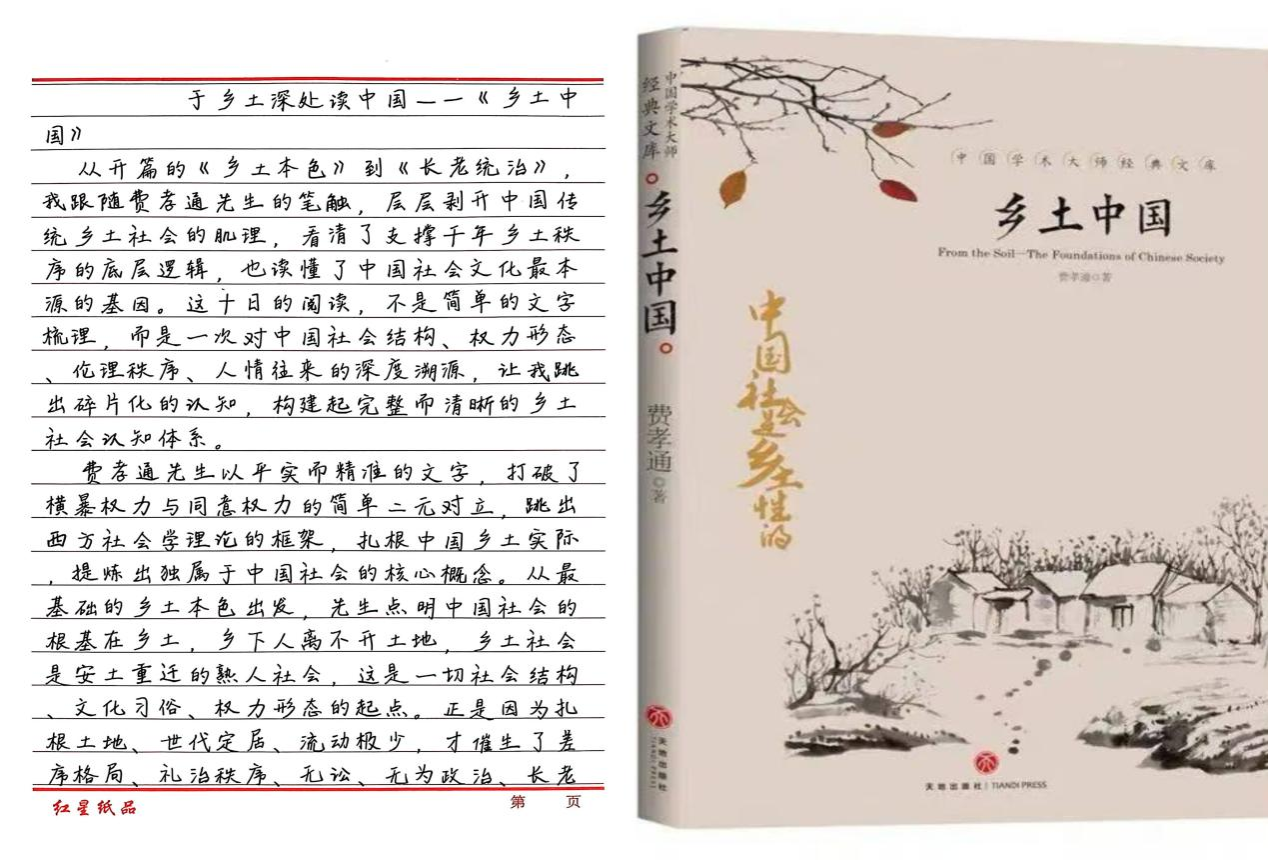 于乡土深处读中国——《乡土中
国》
从开篇的《乡土本色》到《长老统治》，
我跟随费孝通先生的笔触，层层剥开中国传
统乡土社会的肌理，看清了支撑千年乡土秩
序的底层逻辑，也读懂了中国社会文化最本
源的基因。这十日的阅读，不是简单的文字
梳理，而是一次对中国社会结构、权力形态
、伦理秩序、人情往来的深度溯源，让我跳
出碎片化的认知，构建起完整而清晰的乡土
社会认知体系。
费孝通先生以平实而精准的文字，打破了
横暴权力与同意权力的简单二元对立，跳出
西方社会学理论的框架，扎根中国乡土实际
，提炼出独属于中国社会的核心概念。从最
基础的乡土本色出发，先生点明中国社会的
根基在乡土，乡下人离不开土地，乡土社会
是安土重迁的熟人社会，这是一切社会结构
、文化习俗、权力形态的起点。正是因为扎
根土地、世代定居、流动极少，才催生了差
序格局、礼治秩序、无讼、无为政治、长老
红星纸品
第 页
中国学术大师
经典文库
乡土中国
费孝通◎著
天地出版社
TIANDI PRESS
中国学术大师经典文库
乡土中国
From the Soil—The Foundations of Chinese Society
费孝通◎著
中国社会是乡土性的
天地出版社 | TIANDI PRESS